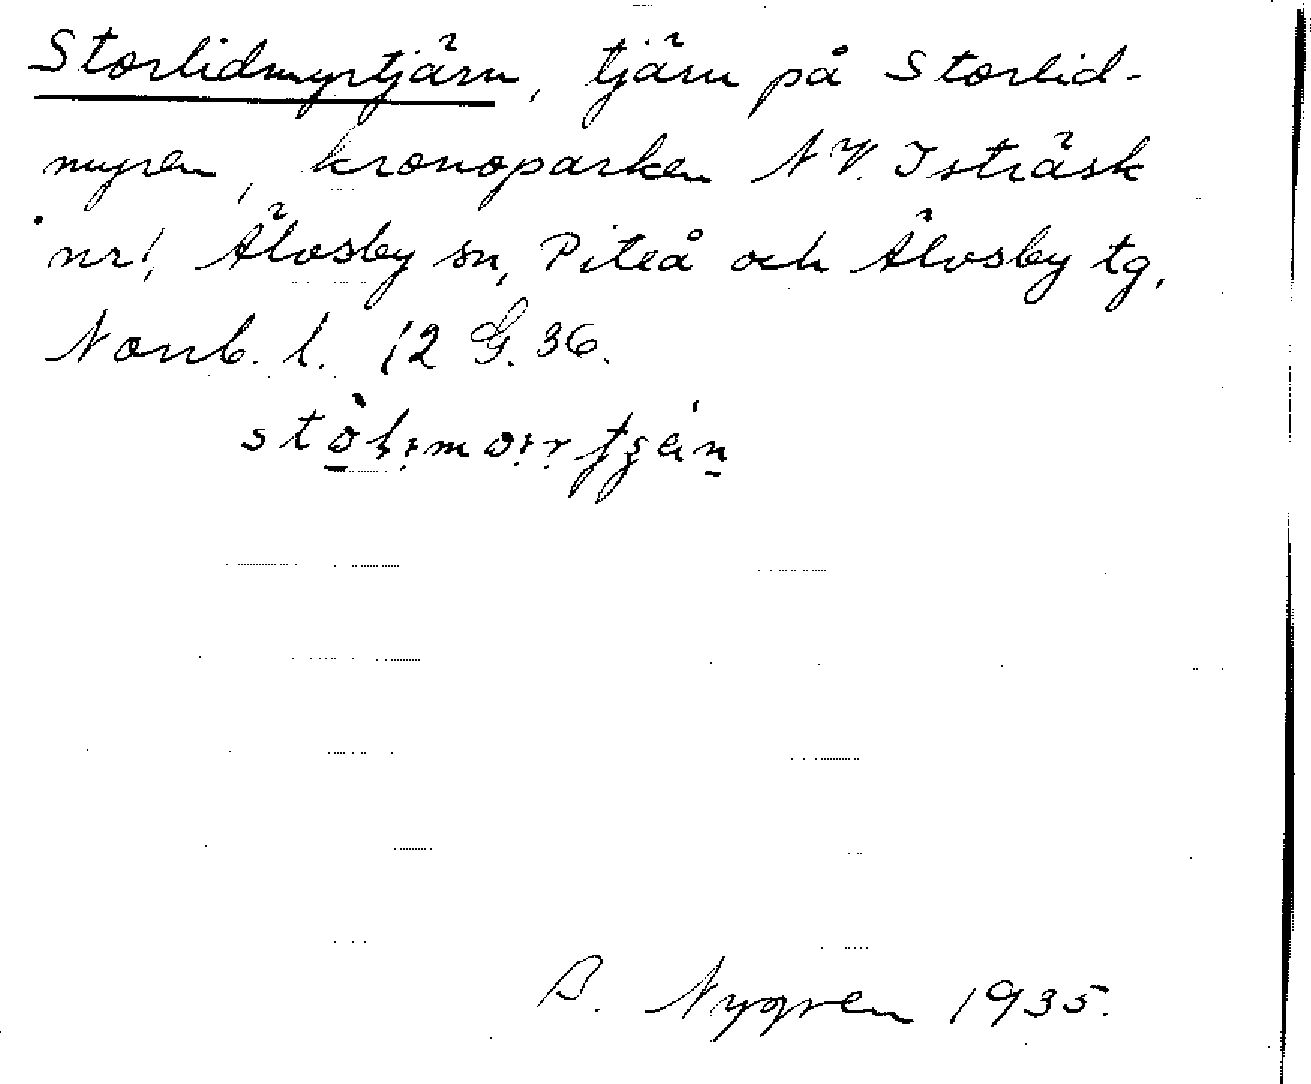 Storlidmyrtjärn, tjärn på Storlid-
myren, kronoparken NV. Isträsk
nr 1, Älvsby sn, Piteå och Älvsby tg,
Norrb. l. 12 G. 36.
Nygren 1935.